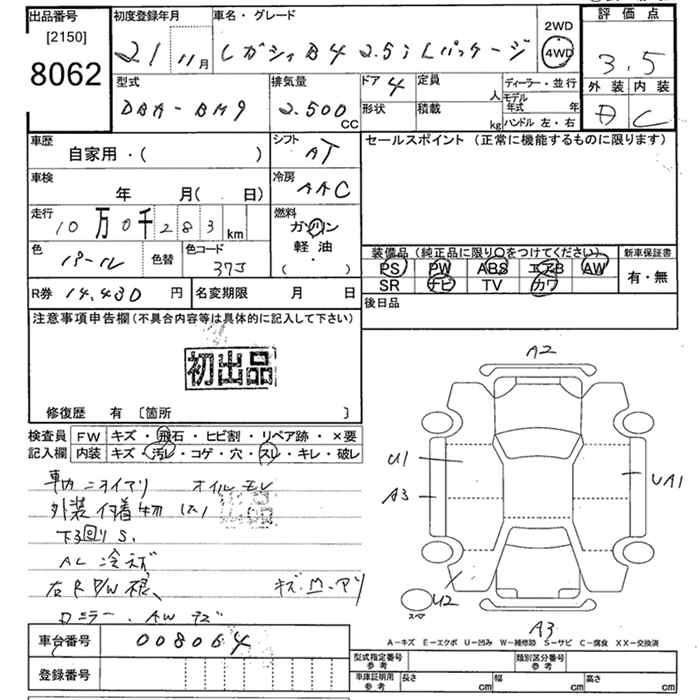 出品番号
[2150]
8062
初度登録年月
21 11月
車名・グレード
レガシィB4 2.5i Lパッケージ
2WD
4WD
評価点
3.5
外装 内装
C
型式
DBA-BM9
排気量
2.500 CC
ドア 4
形状
定員 人
積載 kg
ディーラー・並行
モデル年式 年
ハンドル 左・右
車歴
自家用・( )
シフト
AT
セールスポイント (正常に機能するものに限ります)
車検
年 月( 日)
冷房
AAC
走行
10万0千283km
燃料
ガソリン
軽油
( ・ )
色
パール
色替
色コード
37J
装備品(純正品に限り○をつけてください)
PS PW ABS エアB AW
SR ナビ TV カワ
新車保証書
有・無
R券 14,430 円
名変期限 月 日
後日品
注意事項申告欄(不具合内容等は具体的に記入して下さい)
初出品
修復歴 有 〔箇所 〕
検査員
記入欄
FW キズ・飛石・ヒビ割・リペア跡・×要
内装 キズ・汚レ・コゲ・穴・スレ・キレ・破レ
車内ニオイアリ オイルモレ
外装付着物(大)
下回りS.
AC冷えず
右R P/W
キズ.凹.アリ
ミラー. AWキズ
A2
U1
A3
UA1
U2
スペア
A3
A-キズ E-エクボ U-凹み W-補修跡 S-サビ C-腐食 XX-交換済
車台番号 008064
登録番号
型式指定番号 参考
類別区分番号 参考
車庫証明用 参考
長さ cm
幅 cm
高さ cm